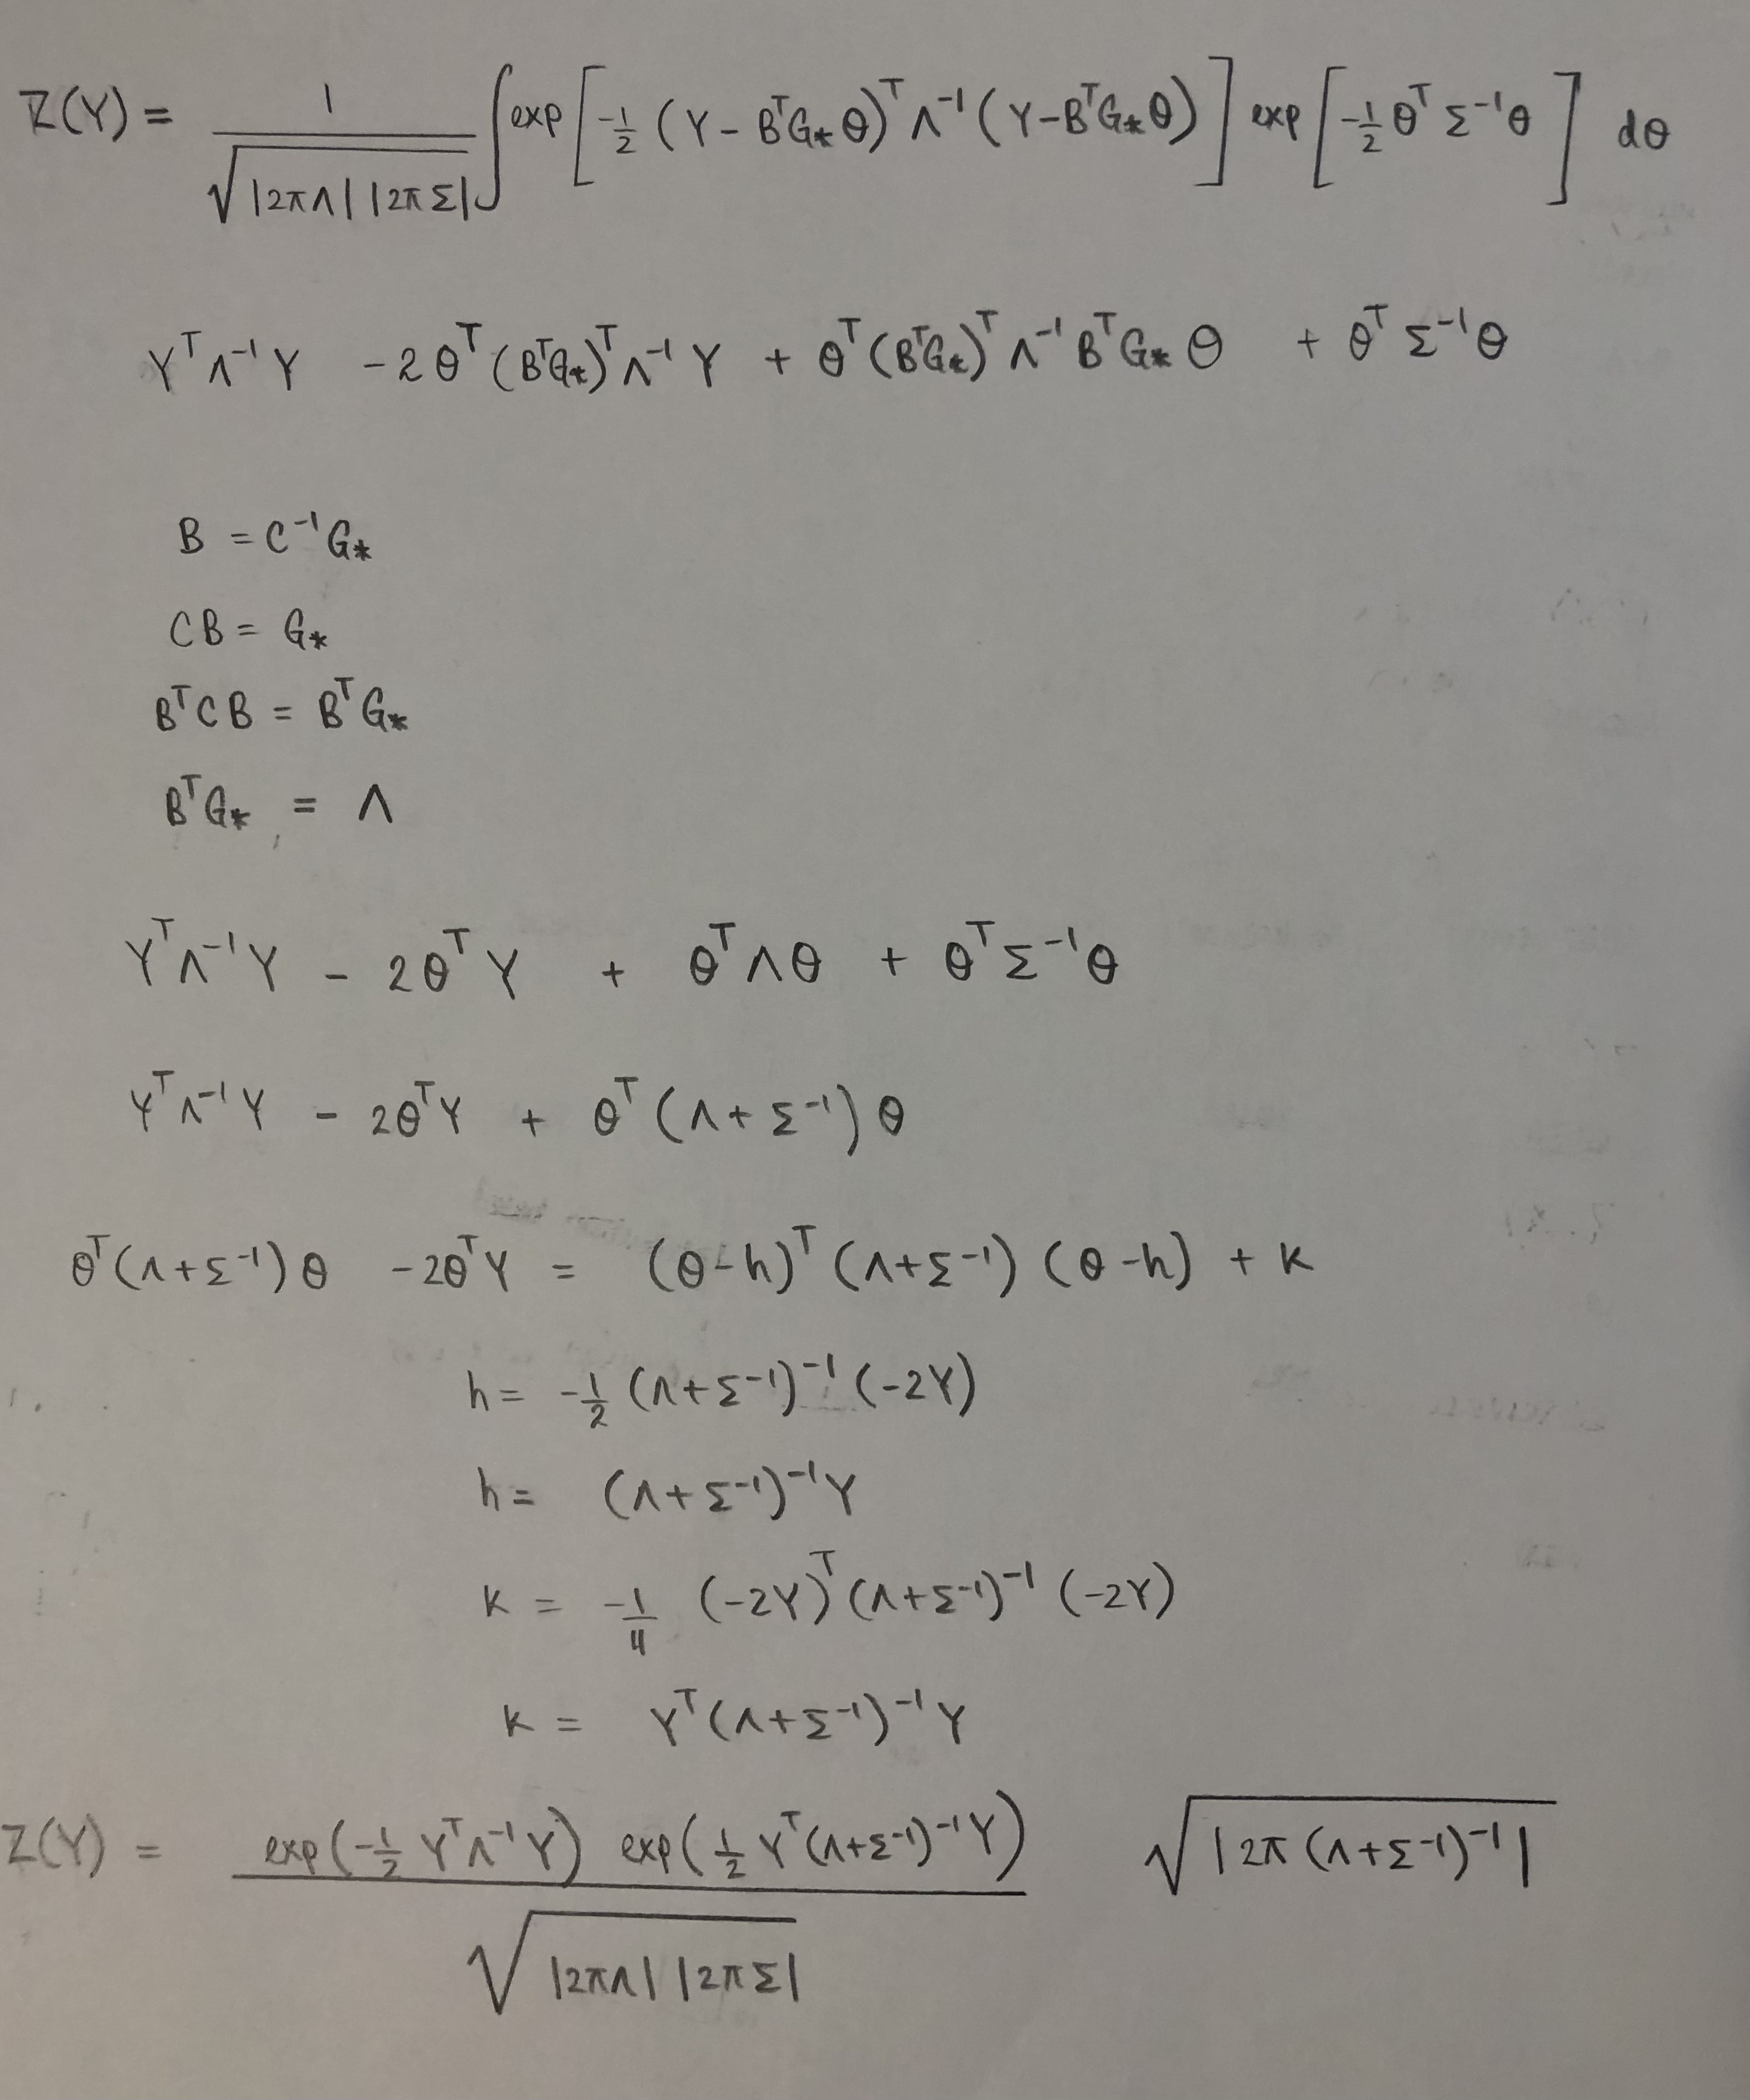 Z(Y) = 1 / √(|2πΛ| |2πΣ|) ∫ exp[-1/2 (Y - BᵀG* θ)ᵀ Λ⁻¹ (Y - BᵀG* θ)] exp[-1/2 θᵀ Σ⁻¹ θ] dθ
YᵀΛ⁻¹Y - 2θᵀ(BᵀG*)ᵀΛ⁻¹Y + θᵀ(BᵀG*)ᵀΛ⁻¹BᵀG* θ + θᵀΣ⁻¹θ
B = C⁻¹G*
CB = G*
BᵀCB = BᵀG*
BᵀG* = Λ
YᵀΛ⁻¹Y - 2θᵀY + θᵀΛθ + θᵀΣ⁻¹θ
YᵀΛ⁻¹Y - 2θᵀY + θᵀ(Λ+Σ⁻¹)θ
θᵀ(Λ+Σ⁻¹)θ - 2θᵀY = (θ-h)ᵀ(Λ+Σ⁻¹)(θ-h) + k
h = -1/2 (Λ+Σ⁻¹)⁻¹(-2Y)
h = (Λ+Σ⁻¹)⁻¹Y
k = -1/4 (-2Y)ᵀ(Λ+Σ⁻¹)⁻¹(-2Y)
k = Yᵀ(Λ+Σ⁻¹)⁻¹Y
Z(Y) = exp(-1/2 YᵀΛ⁻¹Y) exp(1/2 Yᵀ(Λ+Σ⁻¹)⁻¹Y) / √(|2πΛ| |2πΣ|) √|2π(Λ+Σ⁻¹)⁻¹|